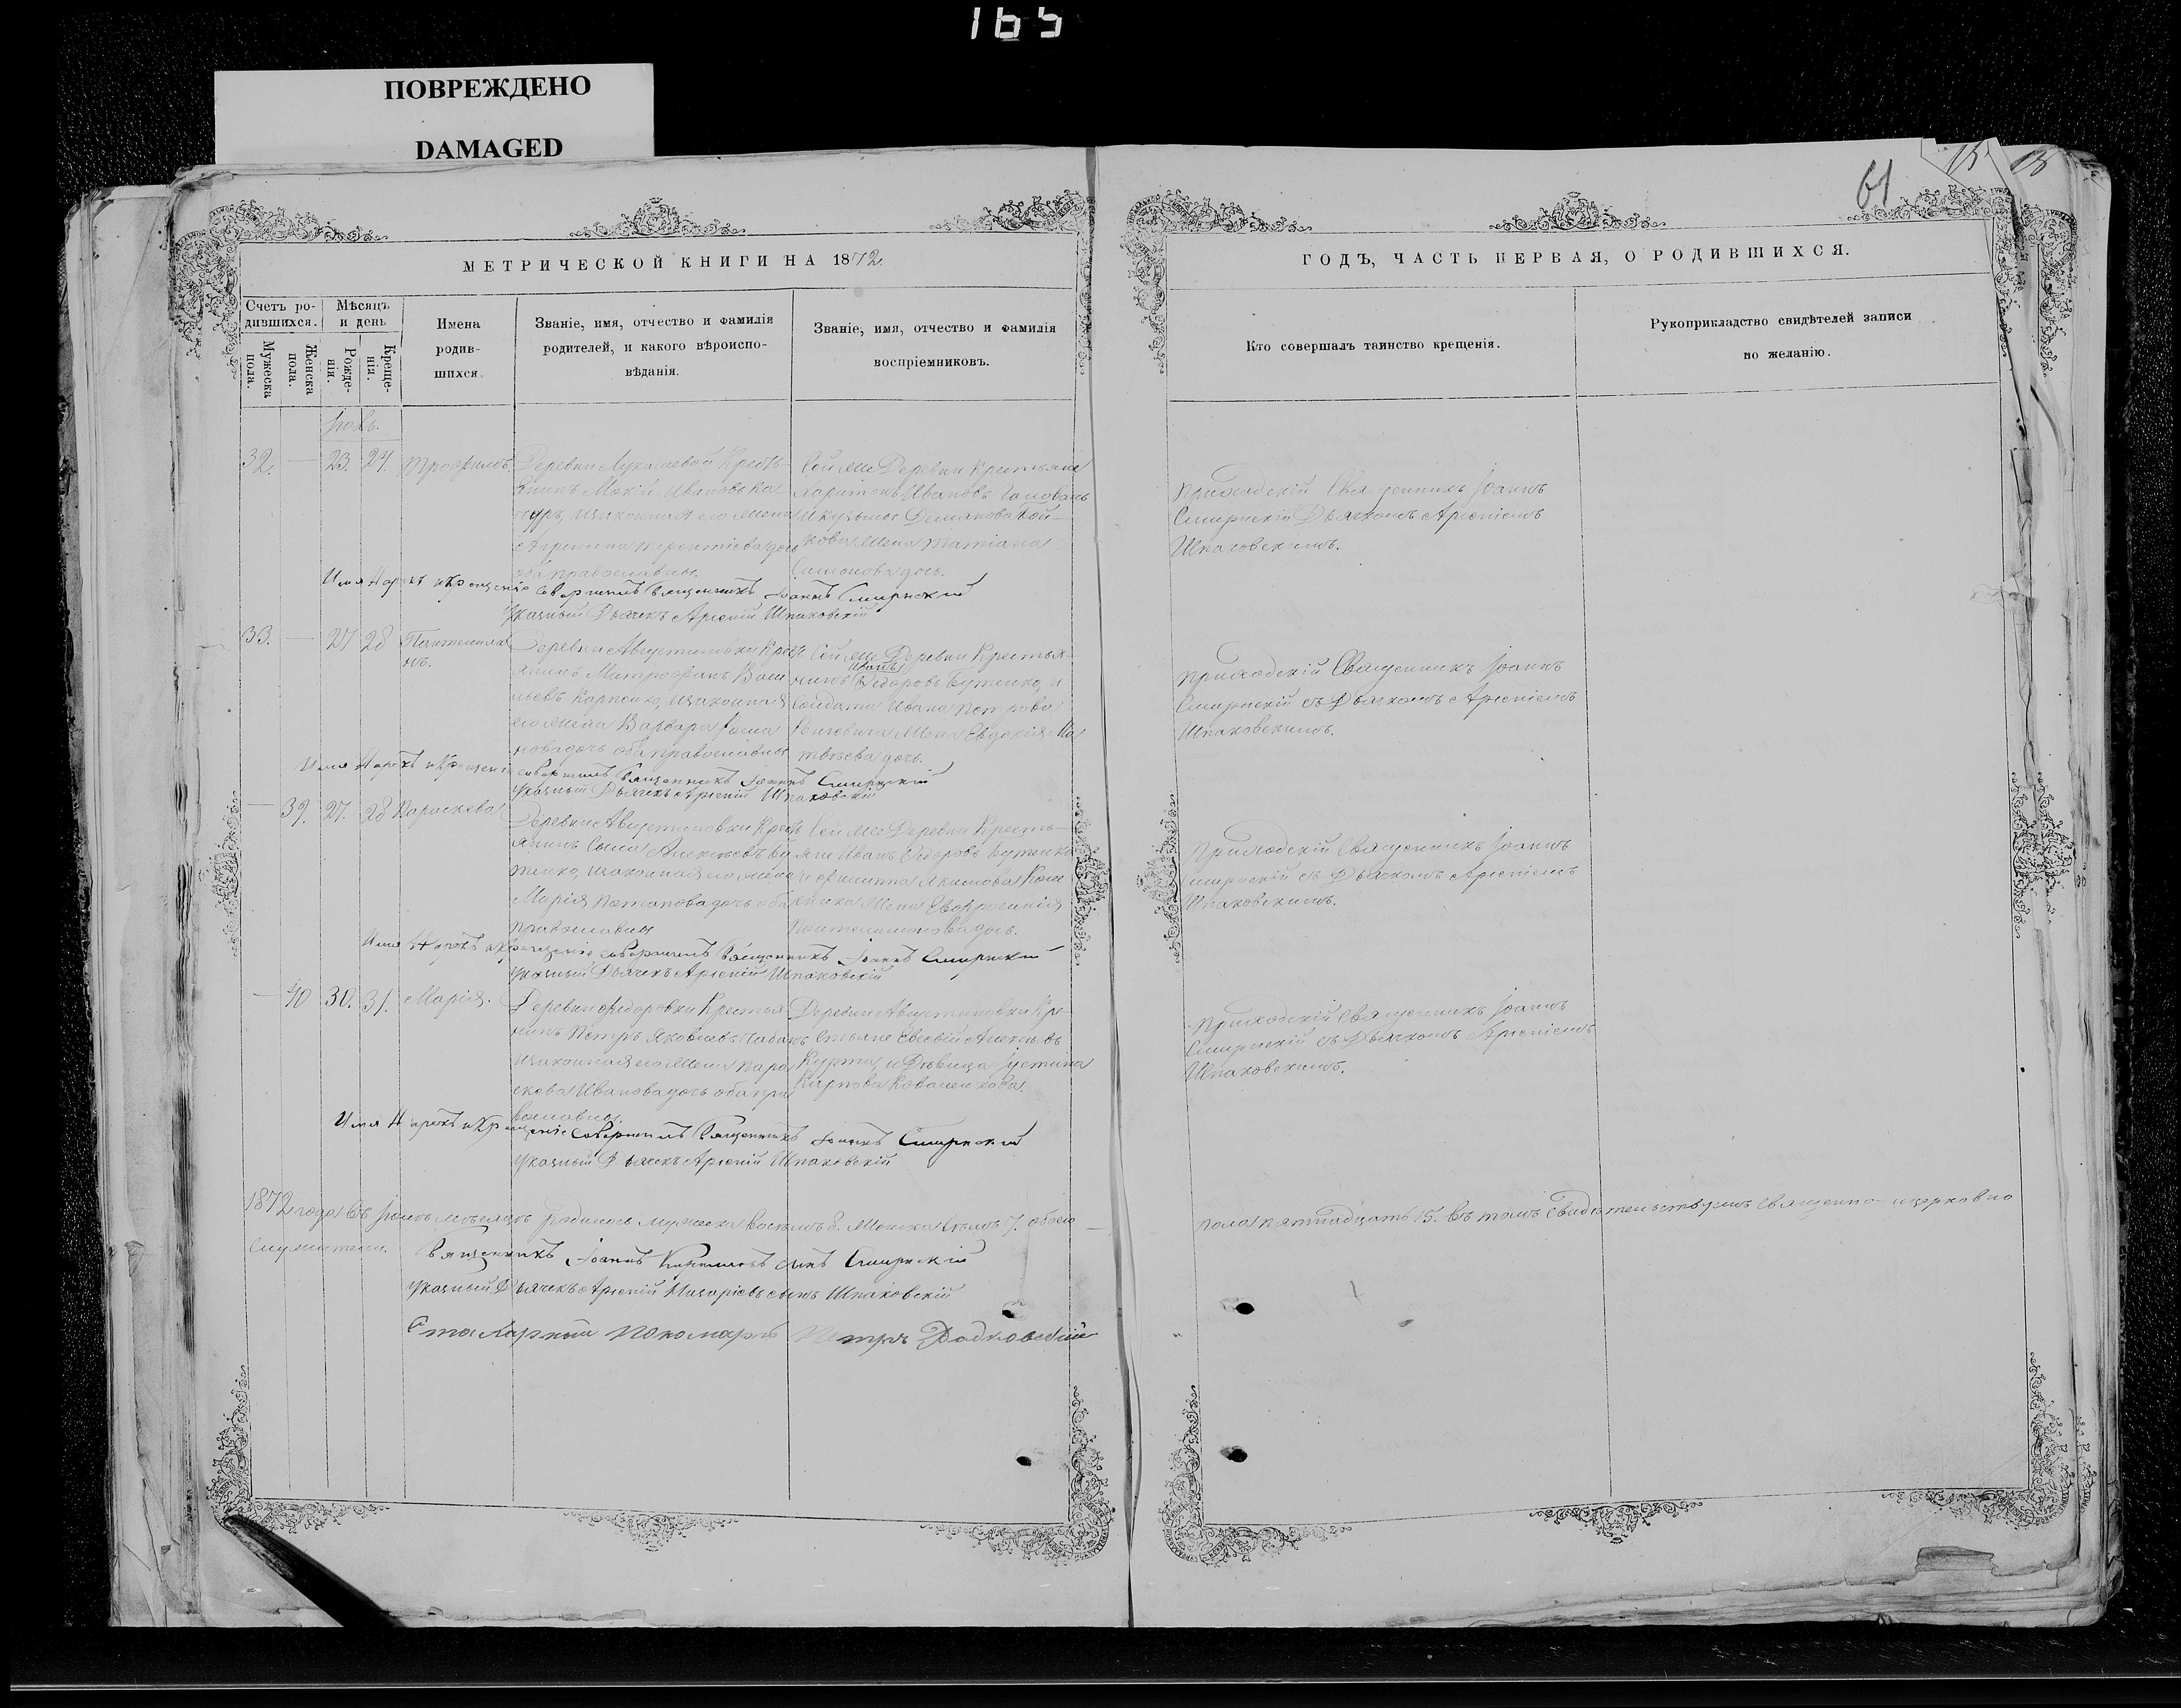 165
ПОВРЕЖДЕНО
DAMAGED
61
15
МЕТРИЧЕСКОЙ КНИГИ НА 1872
ГОДЪ, ЧАСТЬ ПЕРВАЯ, О РОДИВШИХСЯ.
Счетъ ро-
дившихся.
Мужеска
пола.
Женска
пола.
Мѣсяцъ
и день
Рожде-
нія.
Креще-
нія.
Имена
родив-
шихся.
Званіе, имя, отчество и фамилія
родителей, и какого вѣроиспо-
вѣданія.
Званіе, имя, отчество и фамилія
воспріемниковъ.
Кто совершалъ таинство крещенія.
Рукоприкладство свидѣтелей записи
по желанію.
Іюль.
32. — 23. 24. Трофимъ.
Деревни Лукашевой Кресть-
янинъ Мокій Ивановъ Ка-
чуръ, изаконная его жена
Агрипина Терентіева дочь
оба православны.
Сей же Деревни Крестьяне
Харитонъ Ивановъ Головань
и Кузьмы Демянова Бой-
кова жена Татіана
Симонова дочь.
Приходскій Священникъ Іоаннъ
Смирнскій Дьячкомъ Арсеніемъ
Шпаковскимъ.
Имя Нарекъ и Крещеніе Совершилъ Священникъ Іоаннъ Смирнскій
Указный Дьячекъ Арсеній Шпаковскій
33. — 27 28 Пантелеимо
нъ.
Деревни Августиновки Крест
янинъ Митрофанъ Васи
льевъ Карпенко, изаконная
его жена Варвара Фоми
нова дочь оба православны
Сей же Деревни Крестья-
нинъ Иванъ Ѳедоровъ Бутенко, и
Солдата Ивана Петрова
жена Евдокія Ма
твѣева дочь.
Приходскій Священникъ Іоаннъ
Смирнскій съ Дьячкомъ Арсеніемъ
Шпаковскимъ.
Имя Нарекъ и Крещеніе совершилъ Священникъ Іоаннъ Смирнскій
Указный Дьячекъ Арсеній Шпаковскій
— 39. 27. 28 Параскева
Деревни Августиновки Крест
янинъ Савва Алексѣевъ Бу
тенко, изаконная его жена
Марія Потапова дочь оба
православны
Сей же Деревни Кресть-
яне Иванъ Ѳедоровъ Бутенко
и Филиппа Якимова
жена Евфросинія
Пантелимонова дочь.
Приходскій Священникъ Іоаннъ
Смирнскій съ Дьячкомъ Арсеніемъ
Шпаковскимъ.
Имя Нарекъ и Крещеніе совершилъ Священникъ Іоаннъ Смирнскій
Указный Дьячекъ Арсеній Шпаковскій
— 40 30. 31. Марія.
Деревни Ѳедоровки Крестья
нинъ Петръ Яковлевъ Чабанъ
изаконная его жена Пара
скева Иванова дочь оба пра
вославны.
Деревни Августиновки Кре-
стьяне Евсевій Алексѣевъ
Курта, и Дѣвица Іустина
Карпова Коваленкова.
Приходскій Священникъ Іоаннъ
Смирнскій съ Дьячкомъ Арсеніемъ
Шпаковскимъ.
Имя Нарекъ и Крещеніе Совершилъ Священникъ Іоаннъ Смирнскій
Указный Дьячекъ Арсеній Шпаковскій
1872 года въ Іюлѣ мѣсяцѣ родилось мужеска восемь 8. Женска Семь 7. обоего
пола пятнадцать 15. Въ томъ Свидѣтельствуемъ Священно-церковно
служители.
Священникъ Іоаннъ Кирилловъ сынъ Смирнскій
Указный Дьячекъ Арсеній Назаріевъ сынъ Шпаковскій
Пономарь Петръ